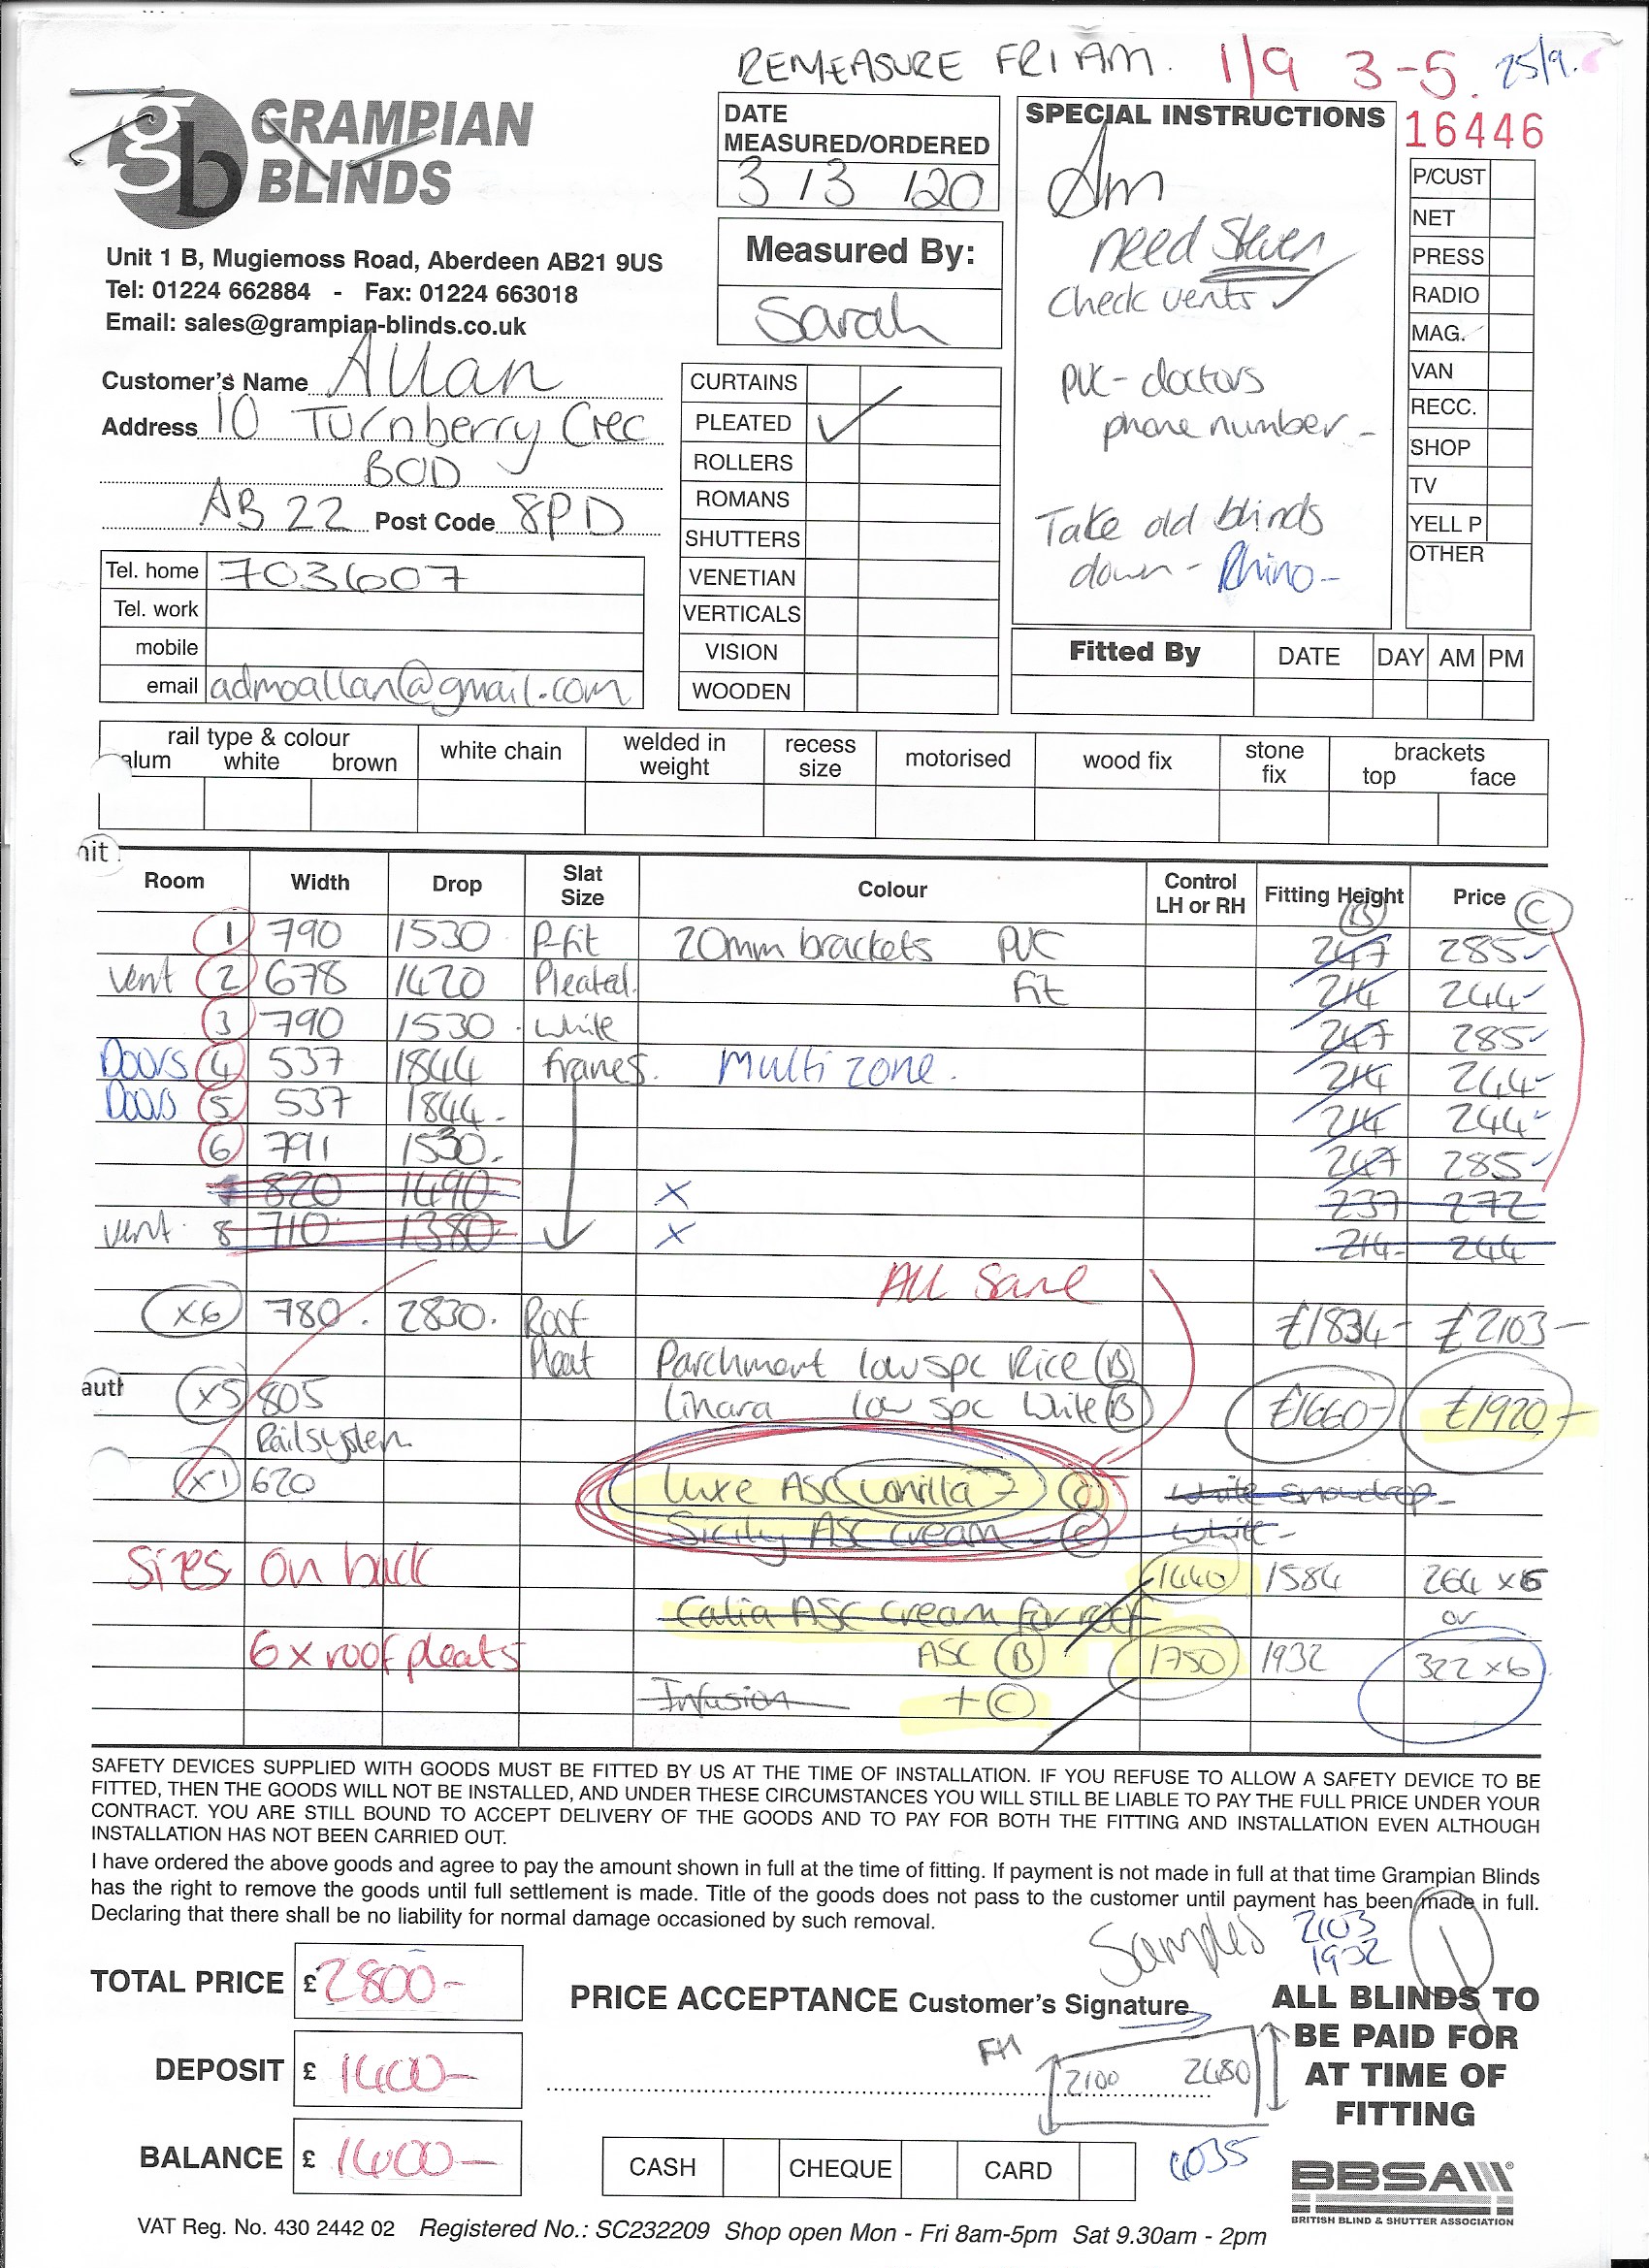 REMEASURE FRI AM. 1/9 3-5. 25/9.
GRAMPIAN
BLINDS
Unit 1 B, Mugiemoss Road, Aberdeen AB21 9US
Tel: 01224 662884 - Fax: 01224 663018
Email: sales@grampian-blinds.co.uk
Customer's Name Allan
Address 10 Turnberry Cres
BOD
AB22 Post Code 8PD
Tel. home 703607
Tel. work
mobile
email admoallan@gmail.com
DATE
MEASURED/ORDERED
3/3/20
Measured By:
Sarah
CURTAINS
PLEATED ✓
ROLLERS
ROMANS
SHUTTERS
VENETIAN
VERTICALS
VISION
WOODEN
SPECIAL INSTRUCTIONS
Am
need Steven
Check vents ✓
PVC - doctors
phone number -
Take old blinds
down - Rhino -
16446
P/CUST
NET
PRESS
RADIO
MAG.
VAN
RECC.
SHOP
TV
YELL P
OTHER
Fitted By DATE DAY AM PM
rail type & colour
alum white brown
white chain
welded in
weight
recess
size
motorised
wood fix
stone
fix
brackets
top face
Room Width Drop Slat Size Colour Control LH or RH Fitting Height Price
(B) (C)
1 790 1530 P-fit 20mm brackets PVC 247 285
vent 2 678 1420 Pleated. fit 214 244
3 790 1530 White 247 285
Doors 4 537 1844 frames. Multi zone. 214 244
Doors 5 537 1844 214 244
6 791 1530. 247 285
820 1490 X 237 272
vent 8 710 1380 X 214 244
All Same
x6 780. 2830. Roof £1834- £2103-
Pleat Parchment low spc Rice (B)
x5 805 Linara low spc White (B) £1660- £1920-
Railsystem
x1 620 Luxe ASC Vanilla (C) White Snowdrop
Sicily ASC Cream (C) White -
Sizes on back 1440 1584 264 x6
Catia ASC cream for roof or
6x roof pleats ASC (B) 1750 1932 322 x6
Infusion + (C)
SAFETY DEVICES SUPPLIED WITH GOODS MUST BE FITTED BY US AT THE TIME OF INSTALLATION. IF YOU REFUSE TO ALLOW A SAFETY DEVICE TO BE
FITTED, THEN THE GOODS WILL NOT BE INSTALLED, AND UNDER THESE CIRCUMSTANCES YOU WILL STILL BE LIABLE TO PAY THE FULL PRICE UNDER YOUR
CONTRACT. YOU ARE STILL BOUND TO ACCEPT DELIVERY OF THE GOODS AND TO PAY FOR BOTH THE FITTING AND INSTALLATION EVEN ALTHOUGH
INSTALLATION HAS NOT BEEN CARRIED OUT.
I have ordered the above goods and agree to pay the amount shown in full at the time of fitting. If payment is not made in full at that time Grampian Blinds
has the right to remove the goods until full settlement is made. Title of the goods does not pass to the customer until payment has been made in full.
Declaring that there shall be no liability for normal damage occasioned by such removal.
Samples 2103
1932
1
TOTAL PRICE £2800-
DEPOSIT £ 1400-
BALANCE £ 1400-
PRICE ACCEPTANCE Customer's Signature
FH 2100 2680
4035
CASH CHEQUE CARD
ALL BLINDS TO
BE PAID FOR
AT TIME OF
FITTING
BBSA
BRITISH BLIND & SHUTTER ASSOCIATION
VAT Reg. No. 430 2442 02 Registered No.: SC232209 Shop open Mon - Fri 8am-5pm Sat 9.30am - 2pm